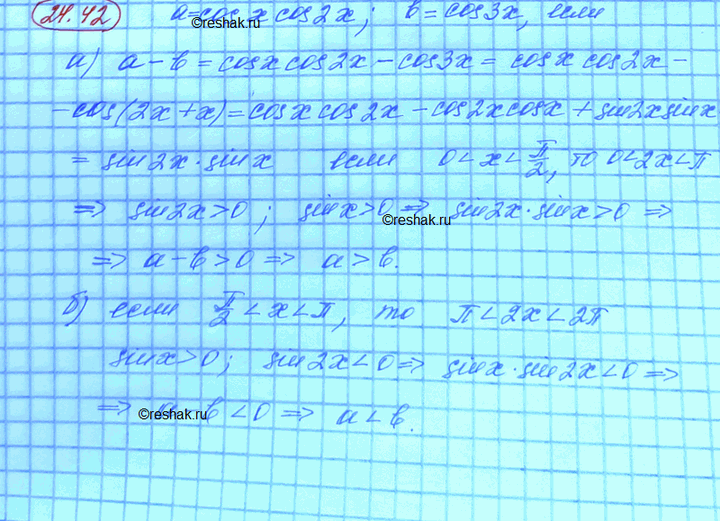 24.42 a=cos x cos 2x; b=cos3x, если
©reshak.ru
а) a-b = cosx cos2x - cos3x = cosx cos2x -
-cos(2x+x)= cosx cos2x - cos2x cosx + sin2x sinx
= sin2x·sin x если 0<x<π/2, то 0<2x<π
=> sin2x>0; sinx>0 => sin2x·sinx>0 =>
©reshak.ru
=> a-b>0 => a>b.
б) если π/2<x<π, то π<2x<2π
sinx>0; sin2x<0 => sinx·sin2x<0 =>
=> a-b<0 => a<b.
©reshak.ru